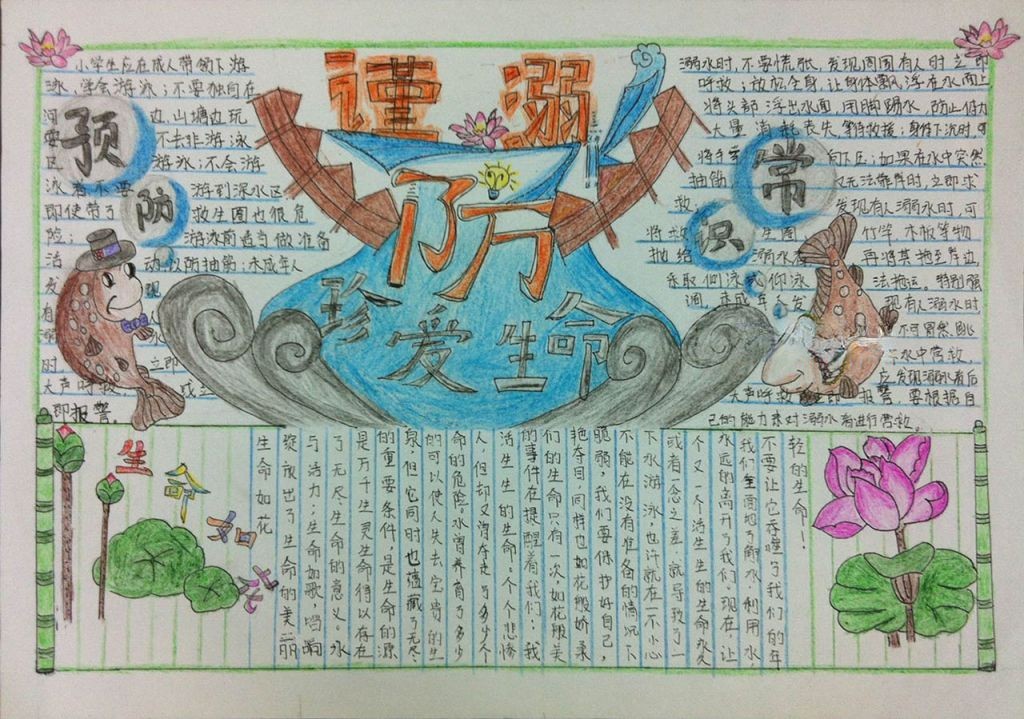 谨 溺
防
珍爱生命
预防
小学生应在成人带领下游
泳,学会游泳;不要独自在
河 边、山塘边玩
要 不去非游泳
区 游泳;不会游
泳者不要 游到深水区
即使带了 救生圈也很危
险; 游泳前适当做准备
活 动,以防抽筋;未成年人
发 现
有
时 立即
大声呼救 或立
即报警。
常识
溺水时,不要慌张,发现周围有人时立即
呼救;放松全身,让身体飘浮在水面上
将头部浮出水面,用脚踢水,防止体力
大量消耗丧失,等待救援;身体下沉时,可
将手掌 向下压;如果在水中突然
抽筋 又无法靠岸时,立即求
救。 发现有人溺水时,可
将救 生圈 竹竿、木板等物
抛给 溺水者 再将其拖至岸边
采取 仰泳 法拖运。特别强
调,未成年人发 现有人溺水时
不可冒然跳
下水中营救,
应发现溺水者后
大声呼救 报警,要根据自
己的能力来对溺水者进行营救。
生命如花
生命如花
绽放出了生命的美丽
与活力;生命如歌,唱响
了无尽生命的意义。水
是万千生灵生命得以存在
的重要条件,是生命的源
泉,但它同时也蕴藏了无尽
的可以使人失去宝贵的生
命的危险。水曾养育了多少
人,但却又曾夺走了多少个
活生生的生命。个个悲惨
的事件在提醒着我们:我
们的生命只有一次,如花般美
艳夺目,同样也如花般娇柔
脆弱,我们要保护好自己,
不能在没有准备的情况下
下水游泳,也许就在一不小心
或者一念之差,就导致了一
个又一个活生生的生命永久
永远的离开了我们。现在,让
我们全面地了解水,利用水
不要让它吞噬了我们的年
轻的生命!